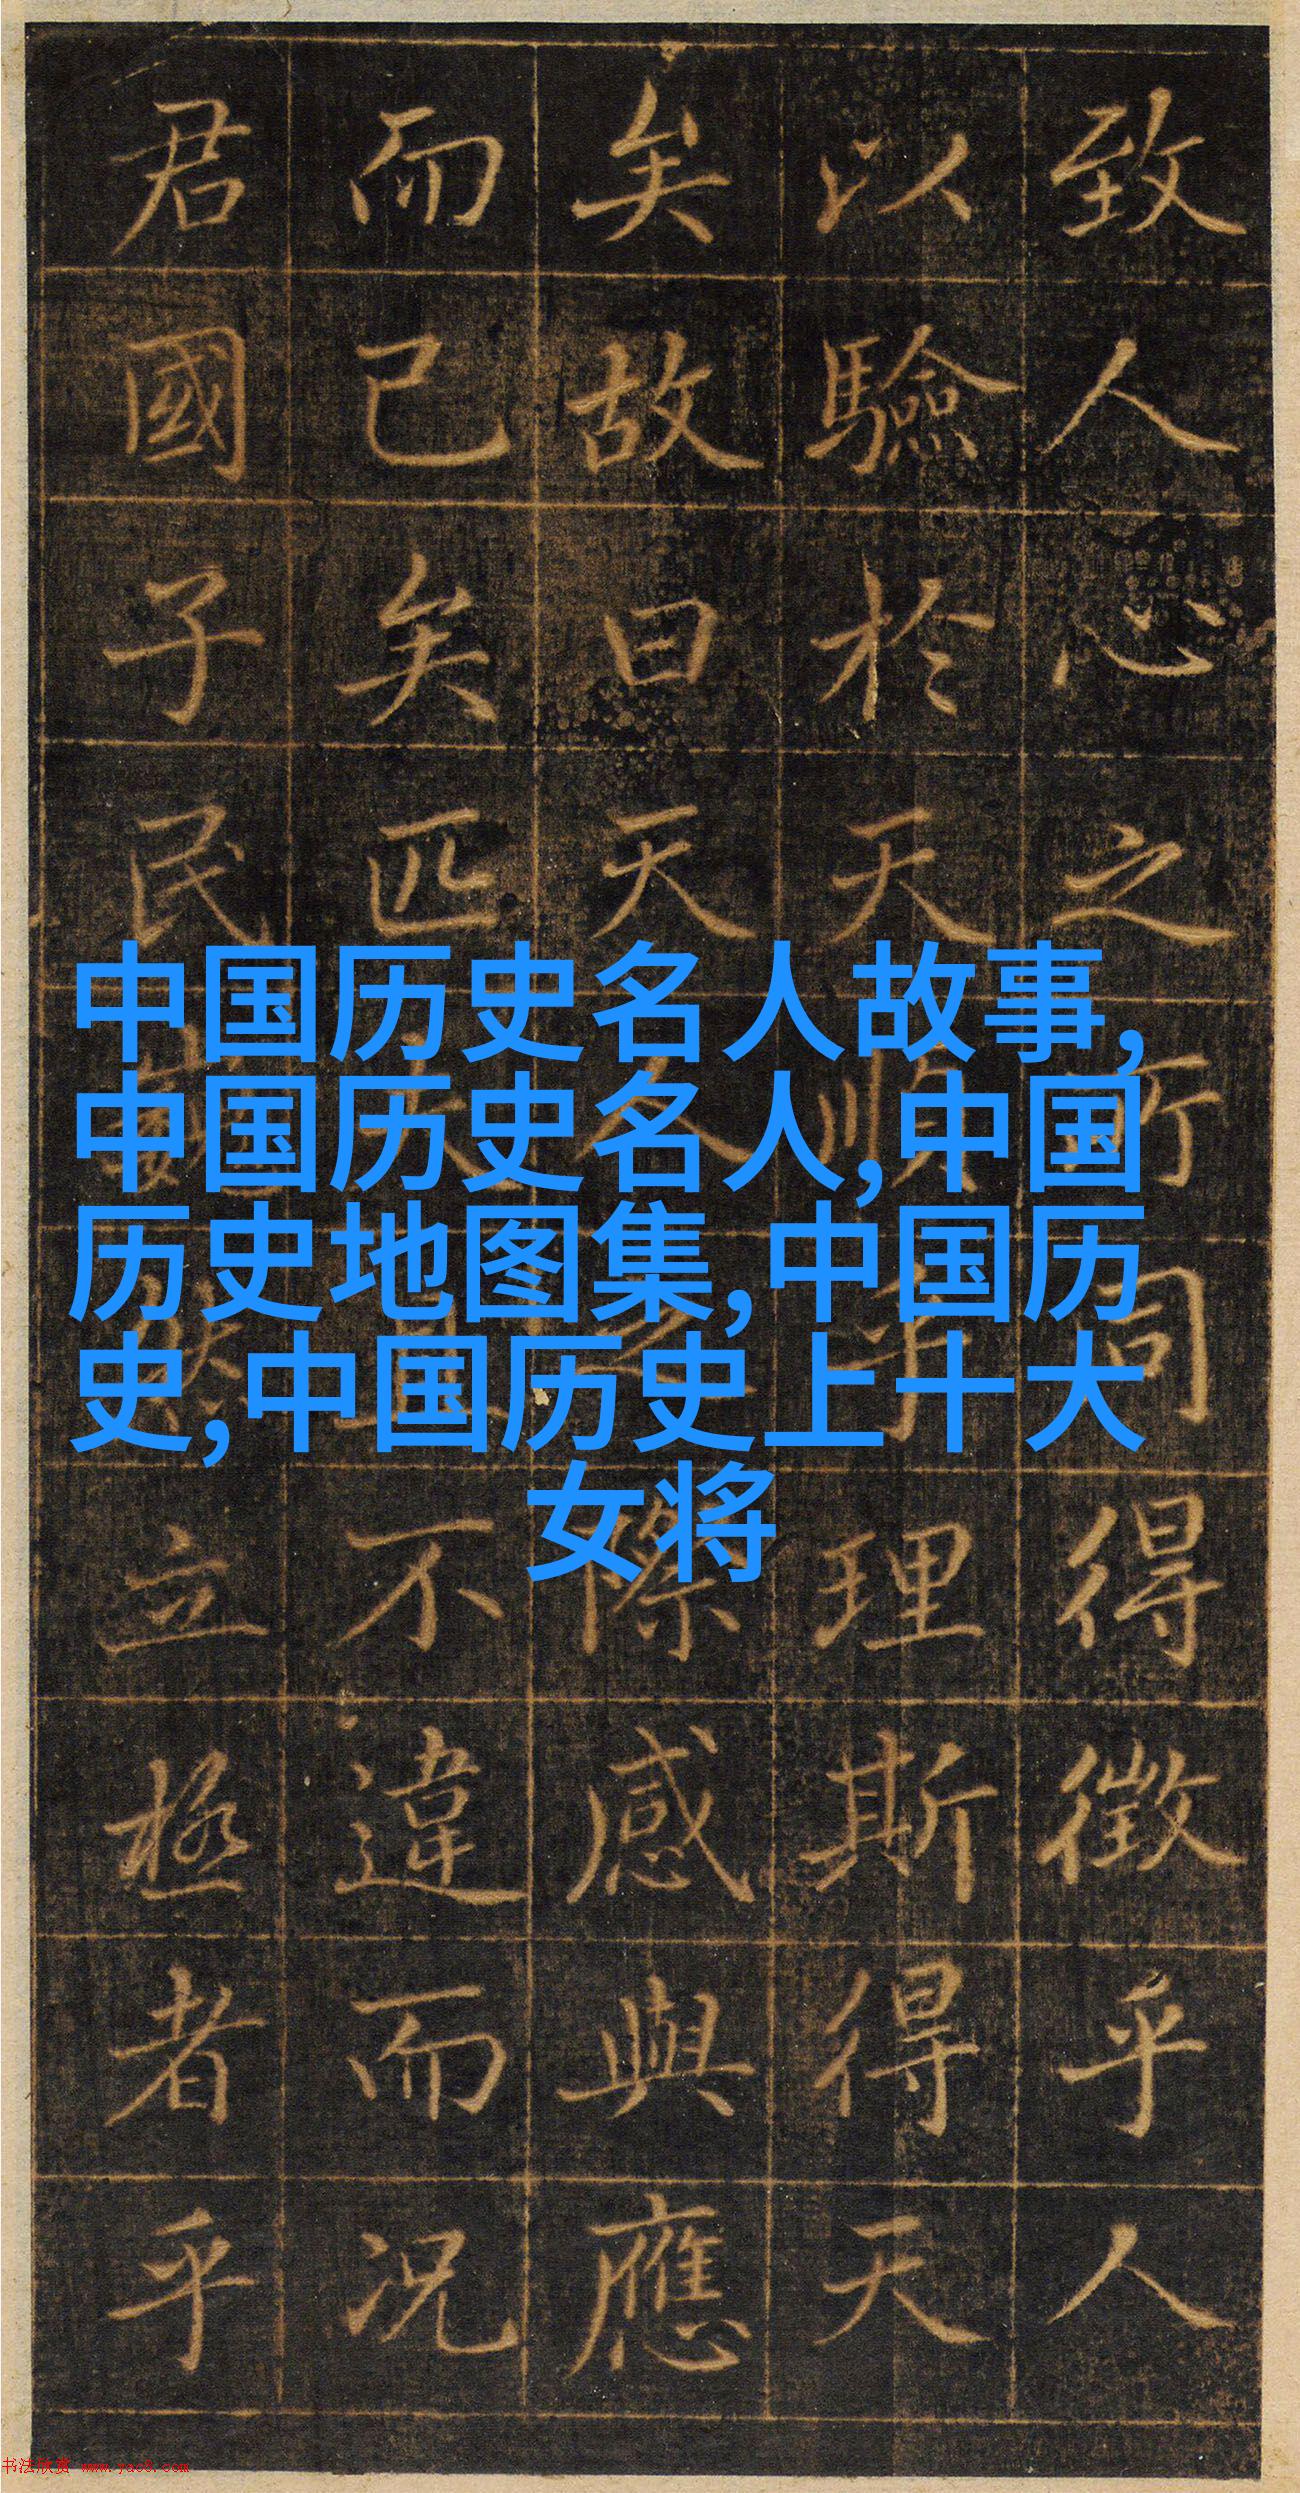 致人心之所同得徵乎人
以驗於天順乎理斯得天
矣故曰天人之際感與應
而已矣匹夫且不違而況
君國子民立極者乎
中国历史名人故事,
中国历史名人,中国
历史地图集,中国历
史,中国历史上十大
女将
书法欣赏 www.yac8.com